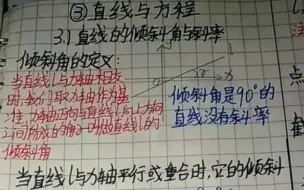 ③直线与方程
3.1 直线的倾斜角与斜率
倾斜角的定义:
当直线l与x轴相交
时,我们取x轴作为基
准,x轴正向与直线l向上方向
之间所成的角α叫做直线l的
倾斜角
倾斜角是90°的
直线没有斜率
当直线l与x轴平行或重合时,它的倾斜
点